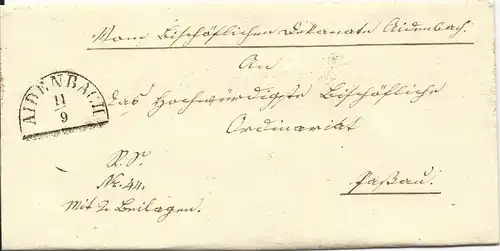 Vom Bischöflichen Dekanate Aidenbach.
An
das Hochwürdigste Bischöfliche
Ordinariat
AIDENBACH
11
9
R. S.
Nr. 44.
Mit 2 Beilagen.
Paßau.